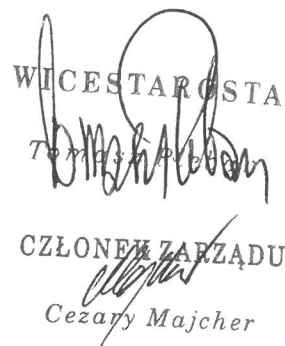 WICESTAROSTA
Tomasz
CZŁONEK ZARZĄDU
Cezary Majcher